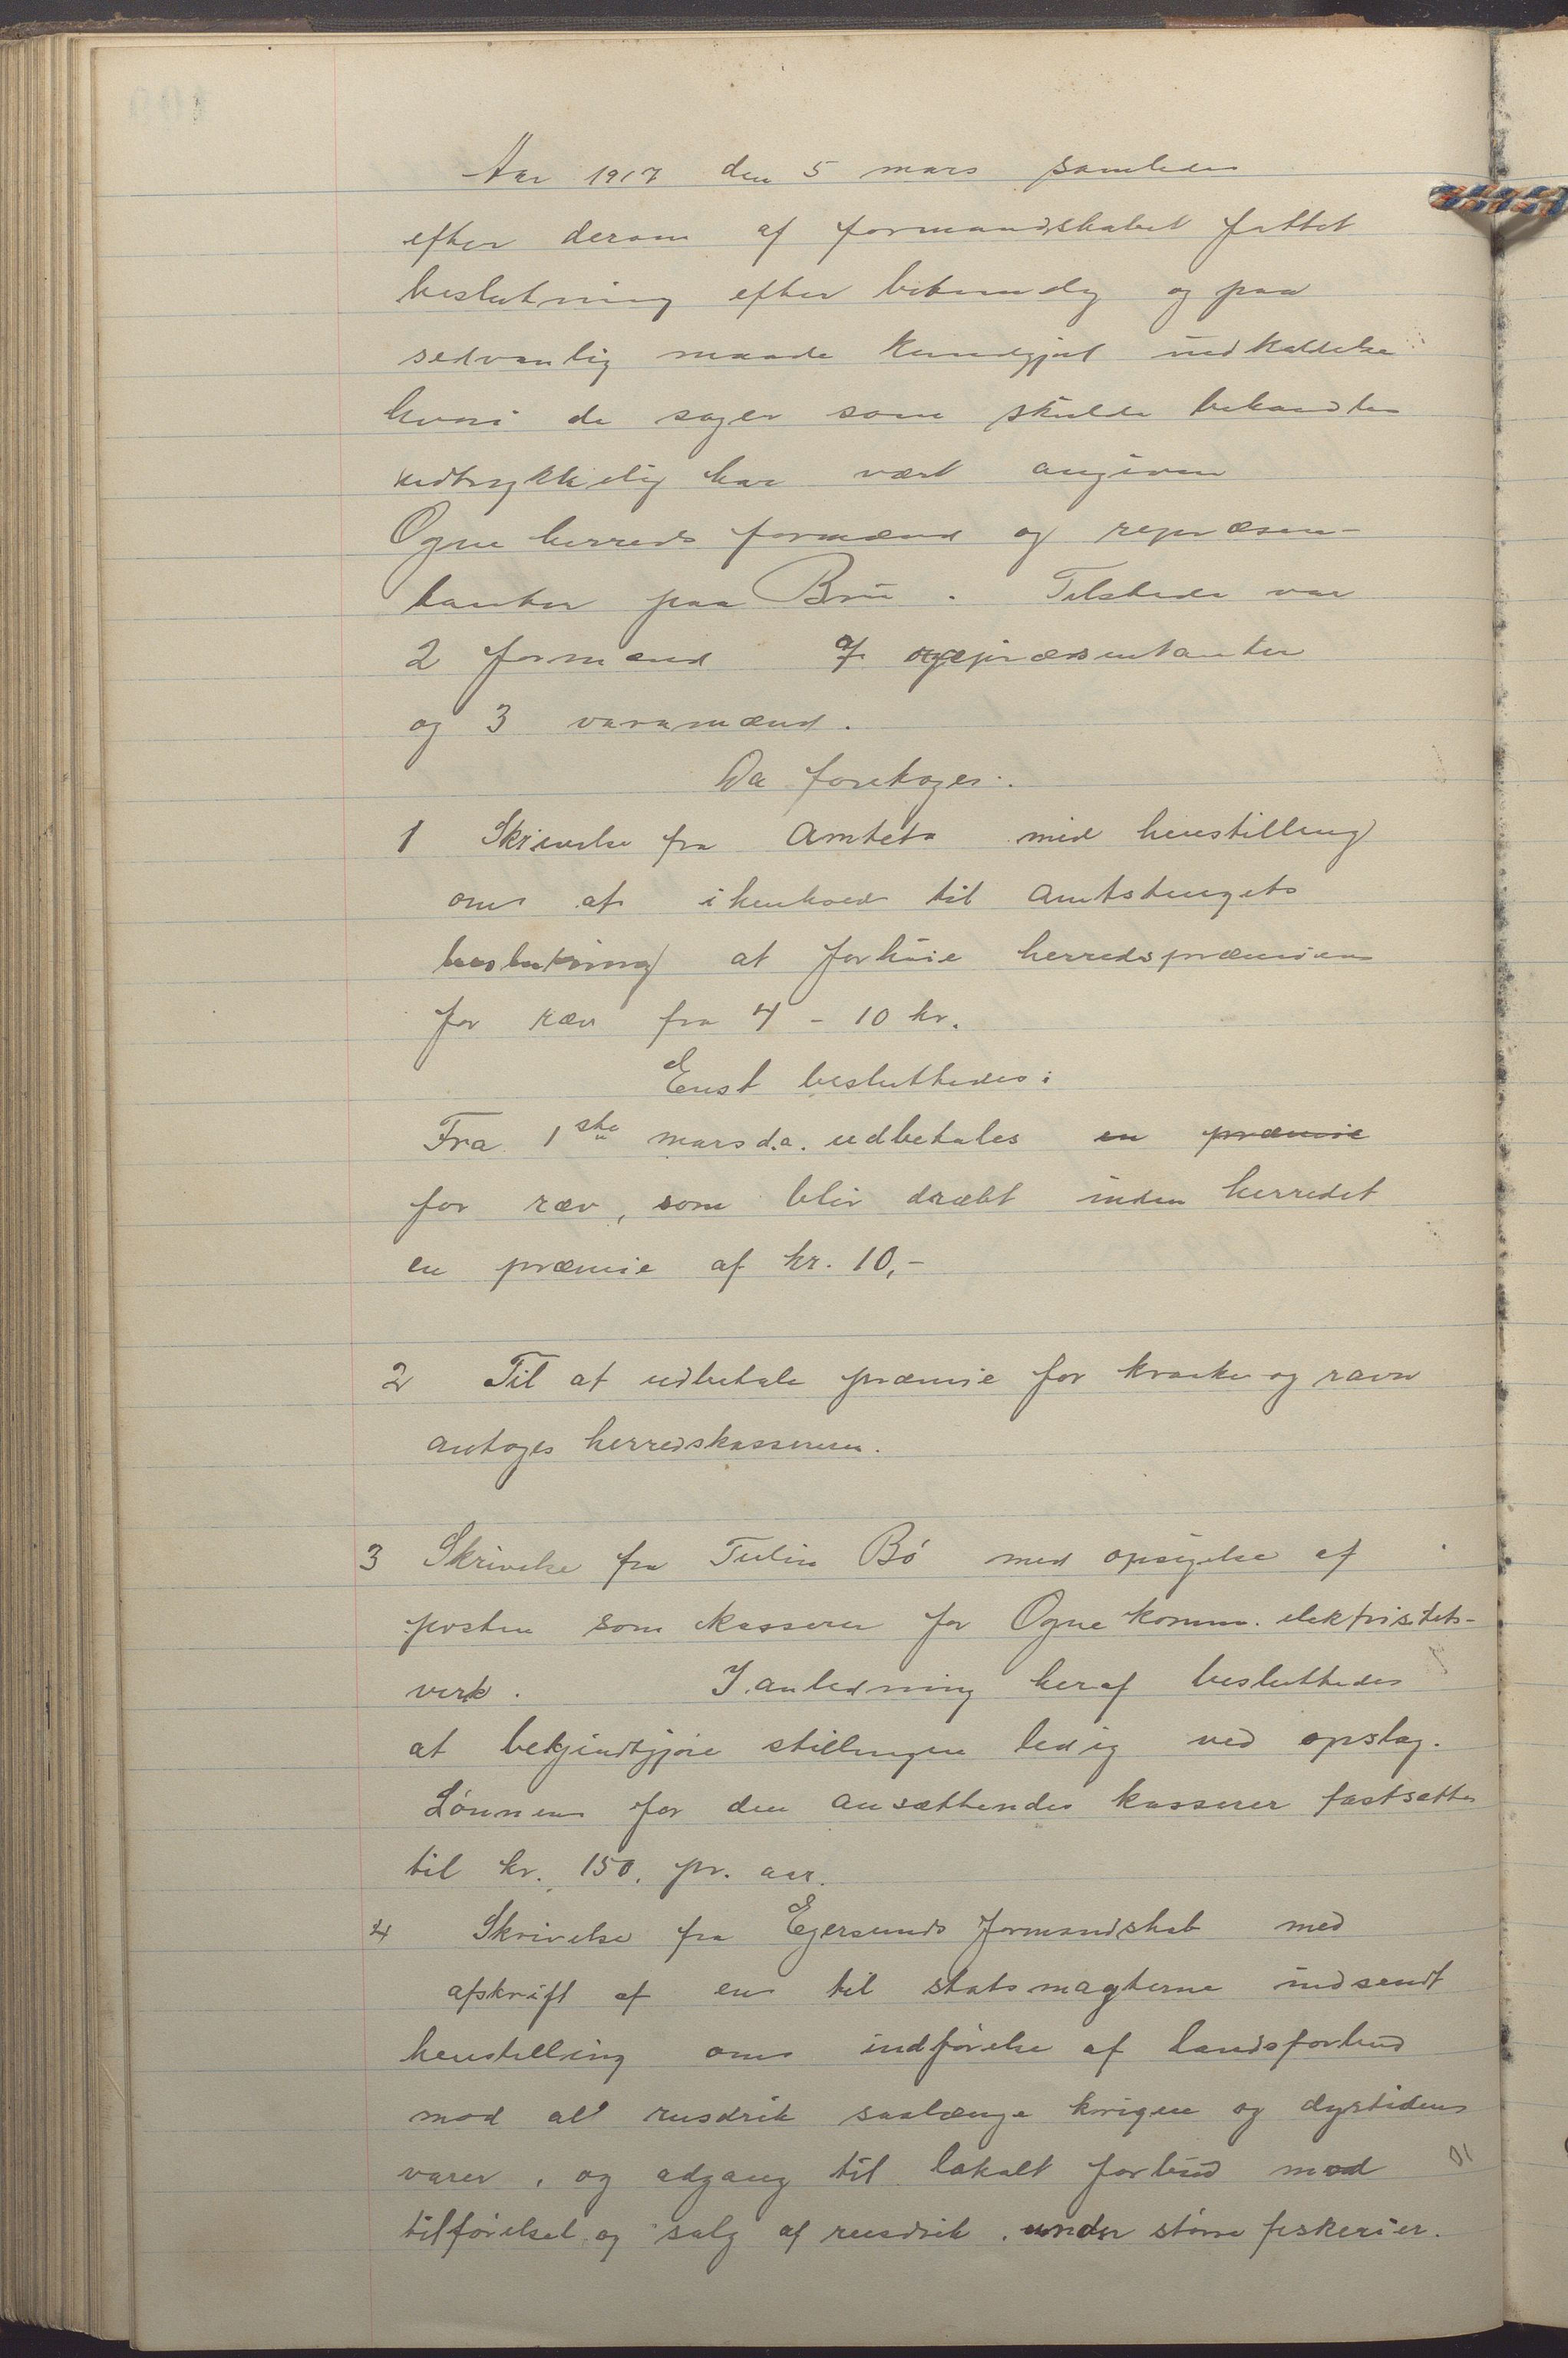 Aar 1917 den 5 mars samledes
efter derom af formandskabet fattet
beslutning efter betimelig og paa
sedvanlig maade kundgjort indkaldelse
hvori de sager som skulde behandles
udtrykkelig har vært angiven
Ogne herreds formænd og repræsen-
tanter paa Bru. Tilstede var
2 formænd 7 repræsentanter
og 3 varamænd.
Da foretoges:
1 Skrivelse fra Amtets med henstilling
om at i henhold til Amtstingets
beslutning at forhöie herredspræmien
for ræv fra 4 - 10 kr.
Enst besluttedes:
Fra 1ste mars d.a. udbetales en præmie
for ræv, som blir dræbt inden herredet
en præmie af kr. 10,-
2 Til at udbetale præmie for kraake og ravn
antoges herredskasseren.
3 Skrivelse fra Tulin Bö med opsigelse af
posten som kasserer for Ogne komm. elektrisitets-
verk. I anledning heraf besluttedes
at bekjendtgjöre stillingen ledig ved opslag.
Lönnen for den ansættendes kasserer fastsættes
til kr. 150, pr. aar.
4 Skrivelse fra Egersunds formandskab med
afskrift af en til statsmagterne indsendt
henstilling om indförelse af landsforbud
mod al rusdrik saalænge krigen og dyrtiden
varer, og adgang til lokalt forbud mod
tilförelsel og salg af rusdrik under större fiskerier.